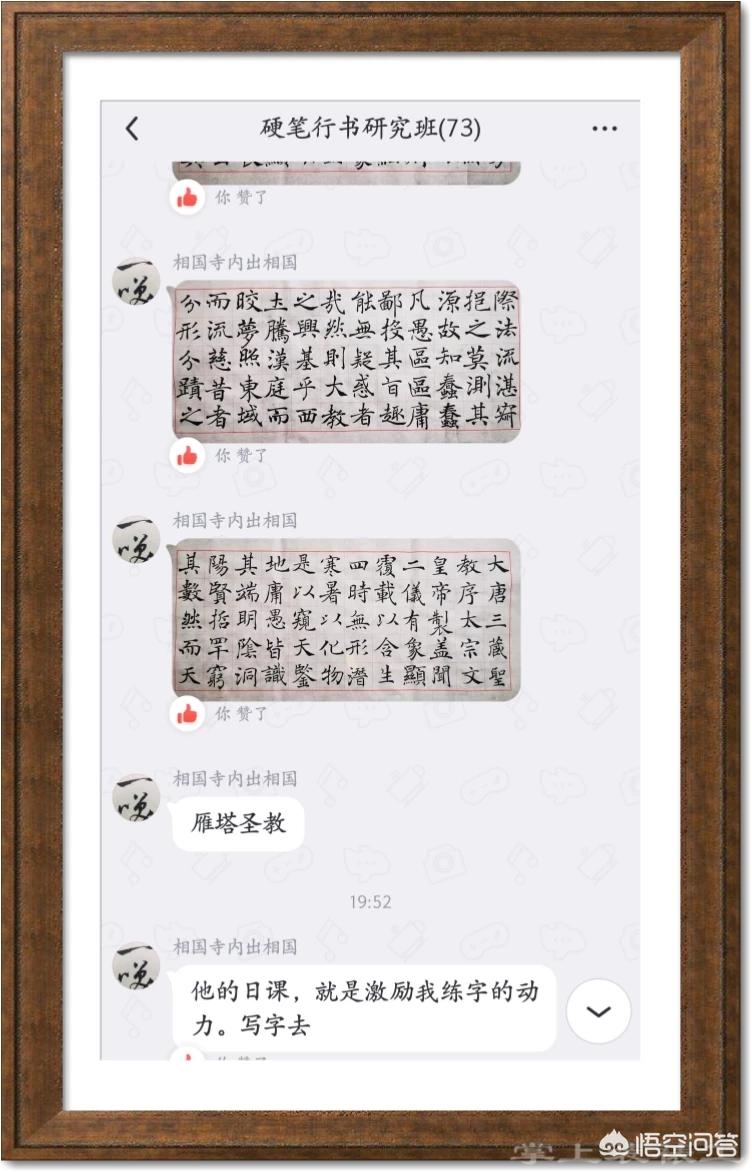 硬笔行书研究班(73)
你 赞了
相国寺内出相国
際法流湛寂
挹之莫測其
源故知蠢蠢
凡愚區區庸
鄙投其旨趣
能無疑惑者
哉然則大教
之興基乎西
土騰漢庭而
晈夢照東域
而流慈昔者
分形分蹟之
你 赞了
相国寺内出相国
大唐三藏聖
教序太宗文
皇帝製盖聞
二儀有象顯
覆載以含生
四時無形潛
寒暑以化物
是以窺天鑒
地庸愚皆識
其端明陰洞
陽賢哲罕窮
其數然而天
你 赞了
相国寺内出相国
雁塔圣教
19:52
相国寺内出相国
他的日课，就是激励我练字的动
力。写字去
悟空问答